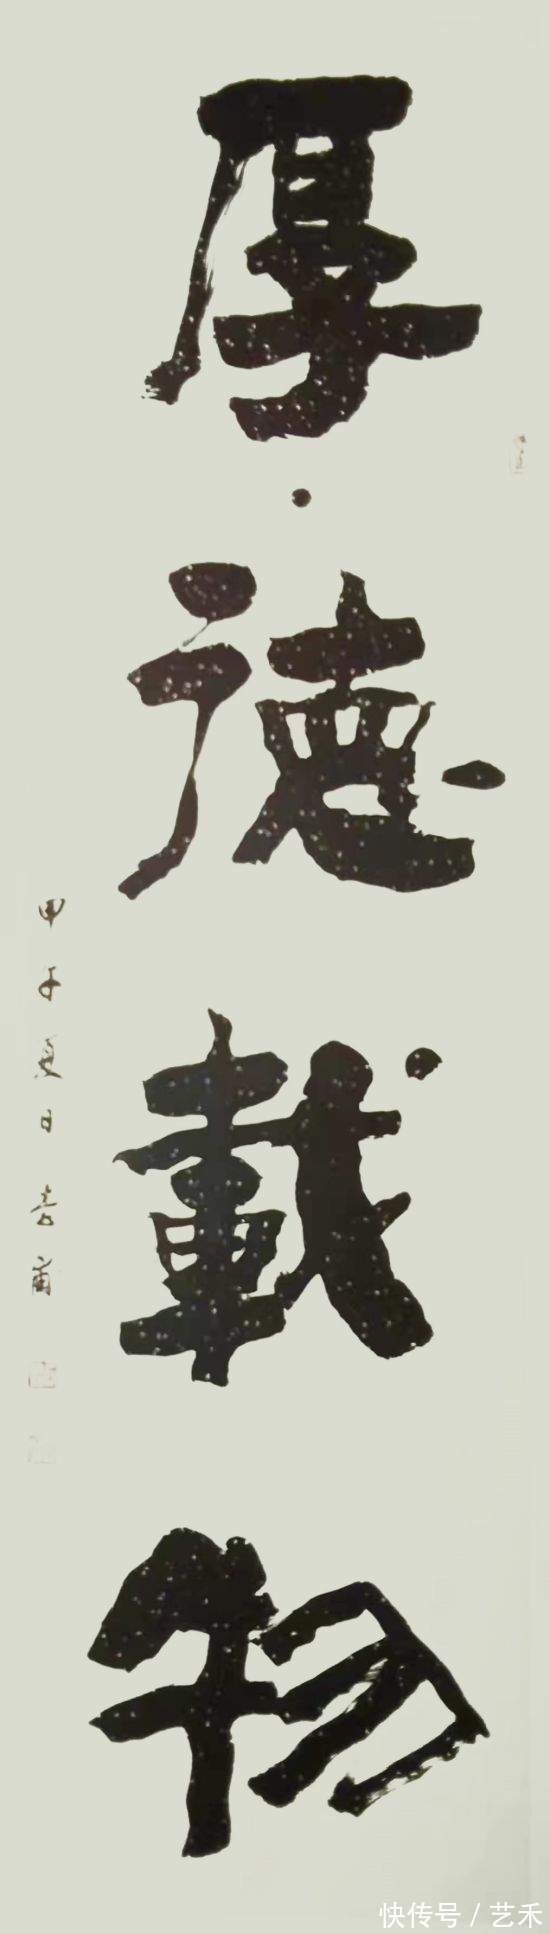 厚德载物
甲午夏日
快传号 / 艺禾